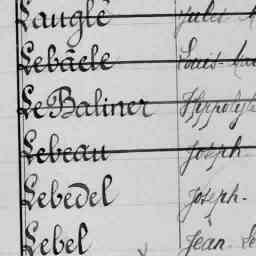 Lauglé Jules
Lebäele Louis-
Le Baliner Hyppolyte
Lebeau Joseph
Lebedel Joseph-
Lebel Jean